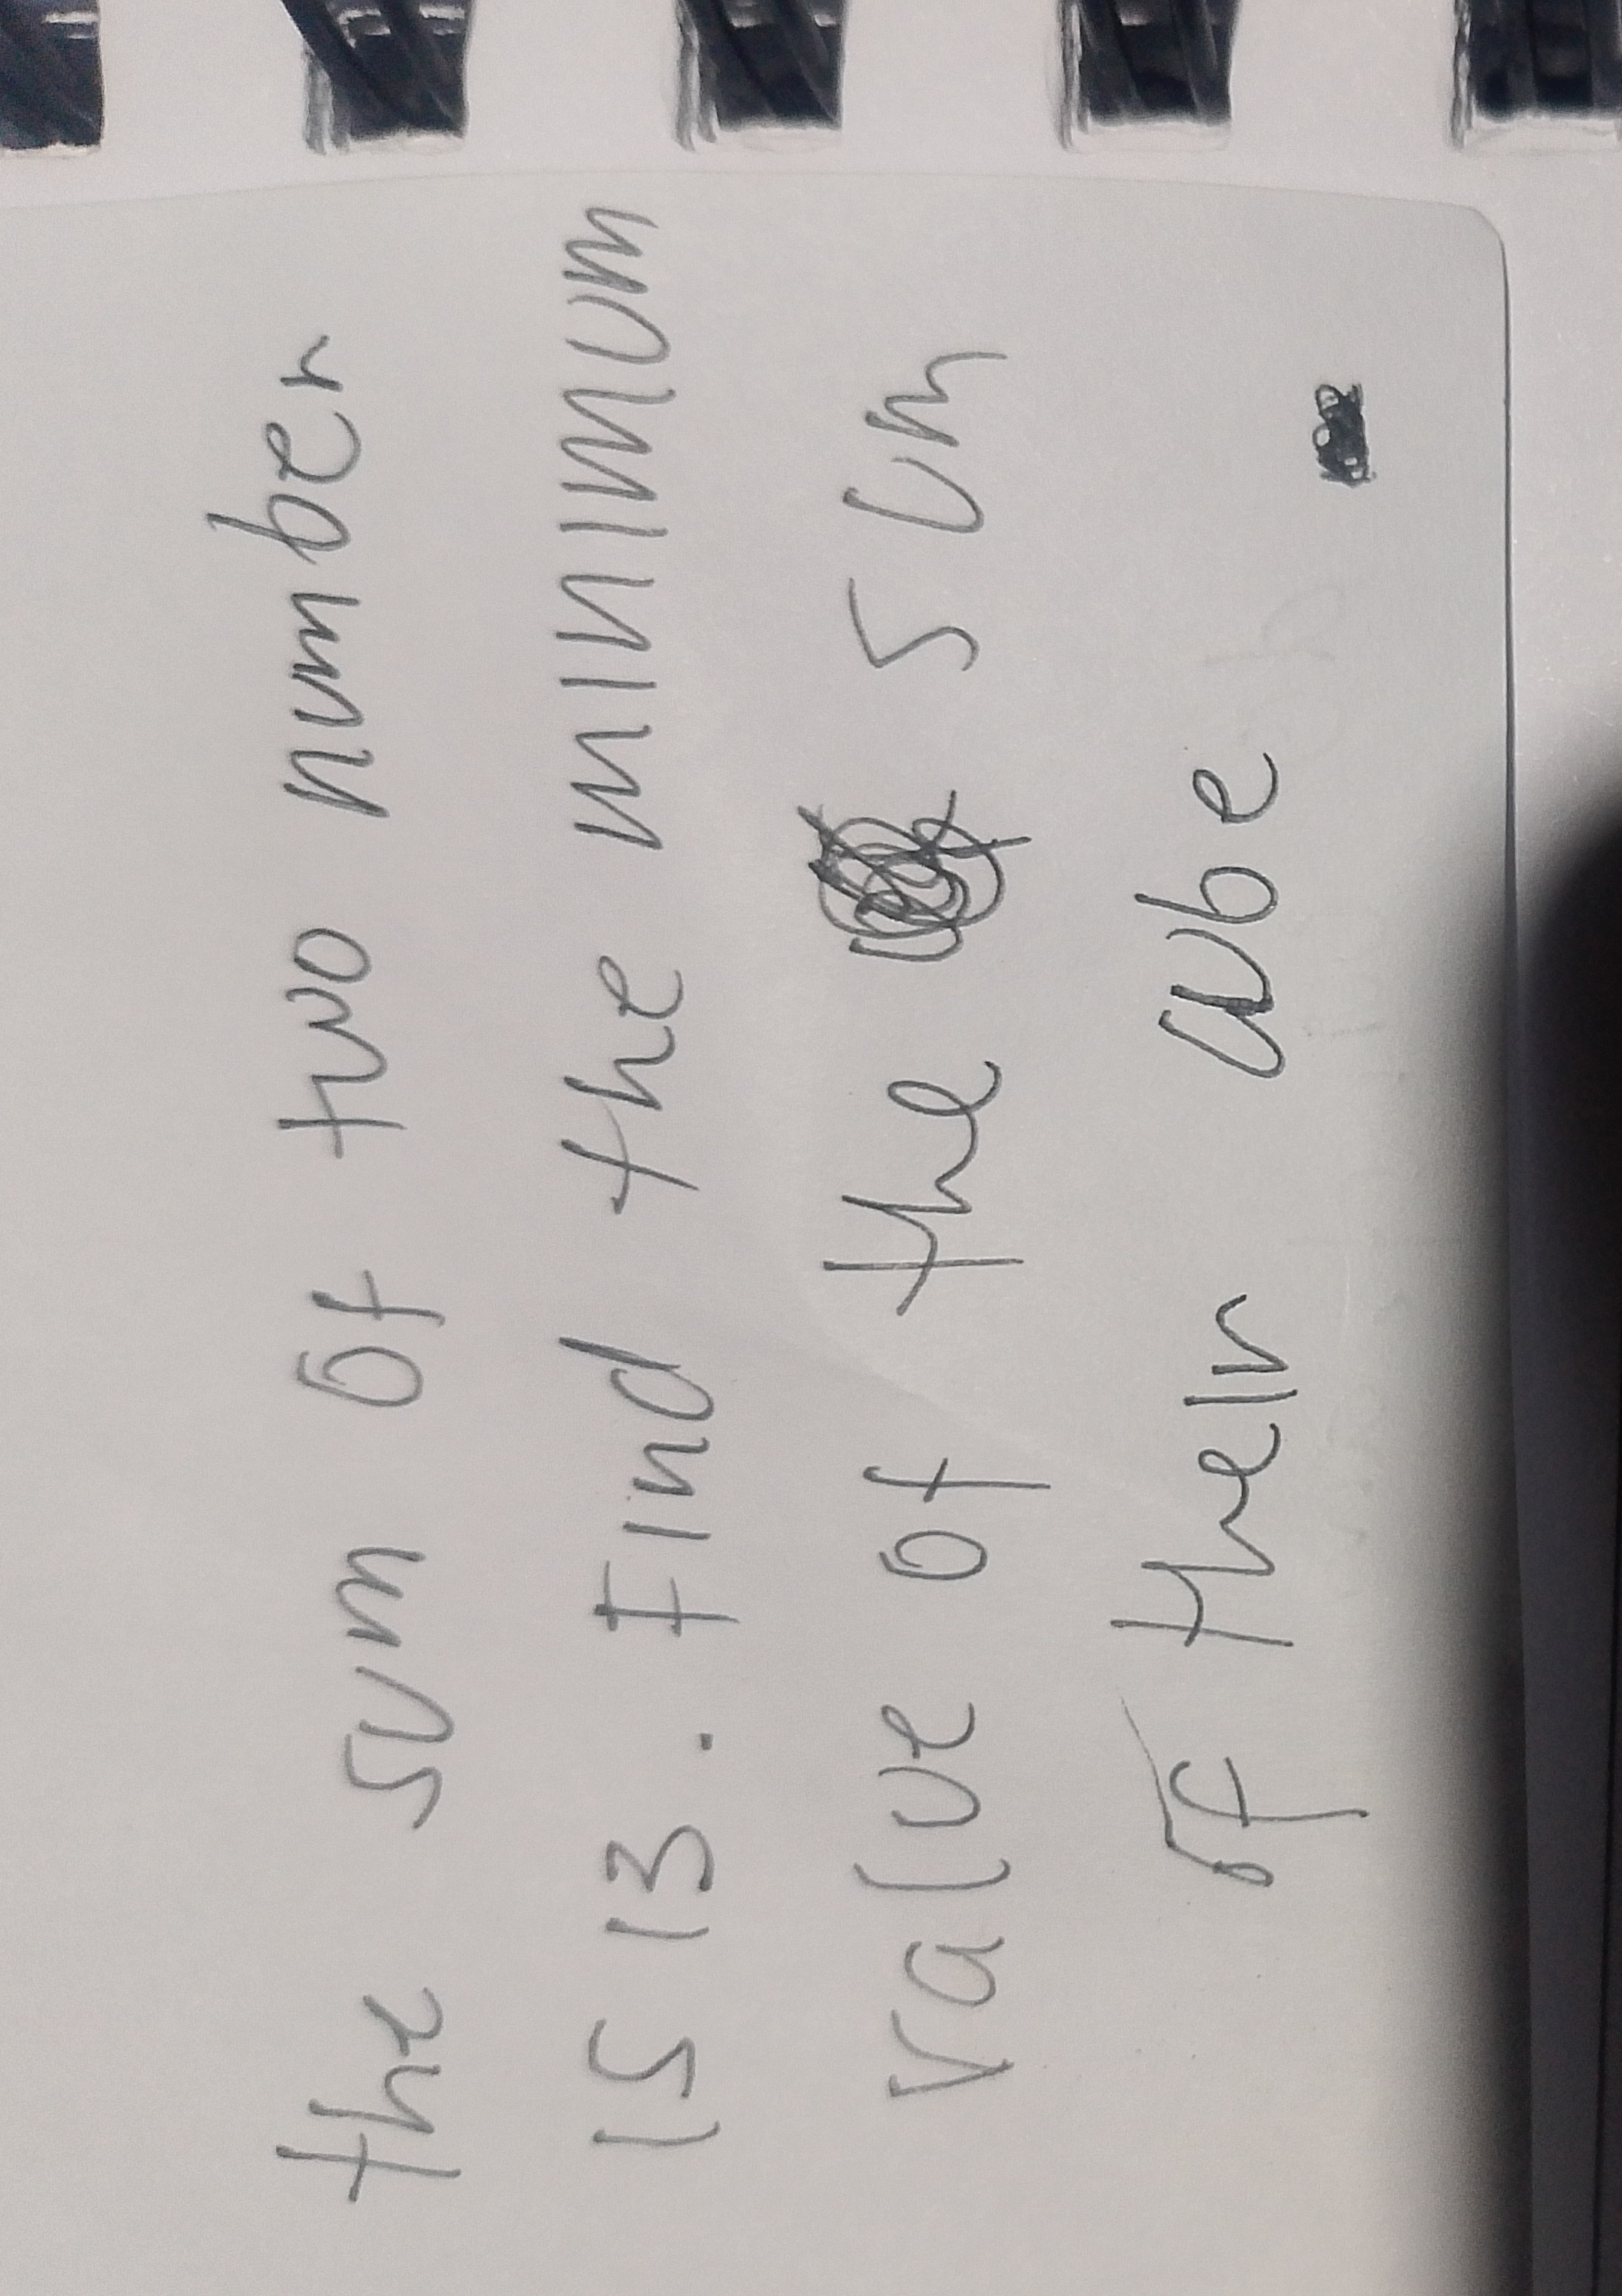 the sum of two number
is 13. Find the minimum
value of the sum
of their cube